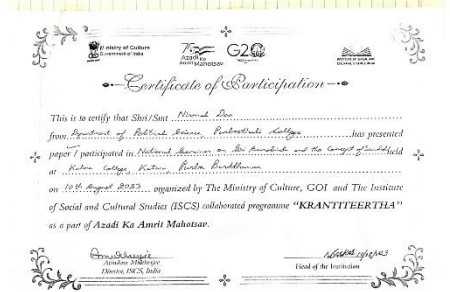 Ministry of Culture
Government of India
75 Azadi Ka Amrit Mahotsav
G20
INSTITUTE OF SOCIAL AND
Certificate of Participation
This is to certify that Shri/Smt Nirmal Das
from Department of Political Science Purbasthali College has presented
paper / participated in National Seminar on Sri Aurobindo and the Concept of held
at Katwa College, Katwa, Purba Bardhaman
on 10th August 2023 organized by The Ministry of Culture, GOI and The Institute
of Social and Cultural Studies (ISCS) collaborated programme "KRANTITEERTHA"
as a part of Azadi Ka Amrit Mahotsav.
Arindam Mukherjee
Director, ISCS, India
Head of the Institution